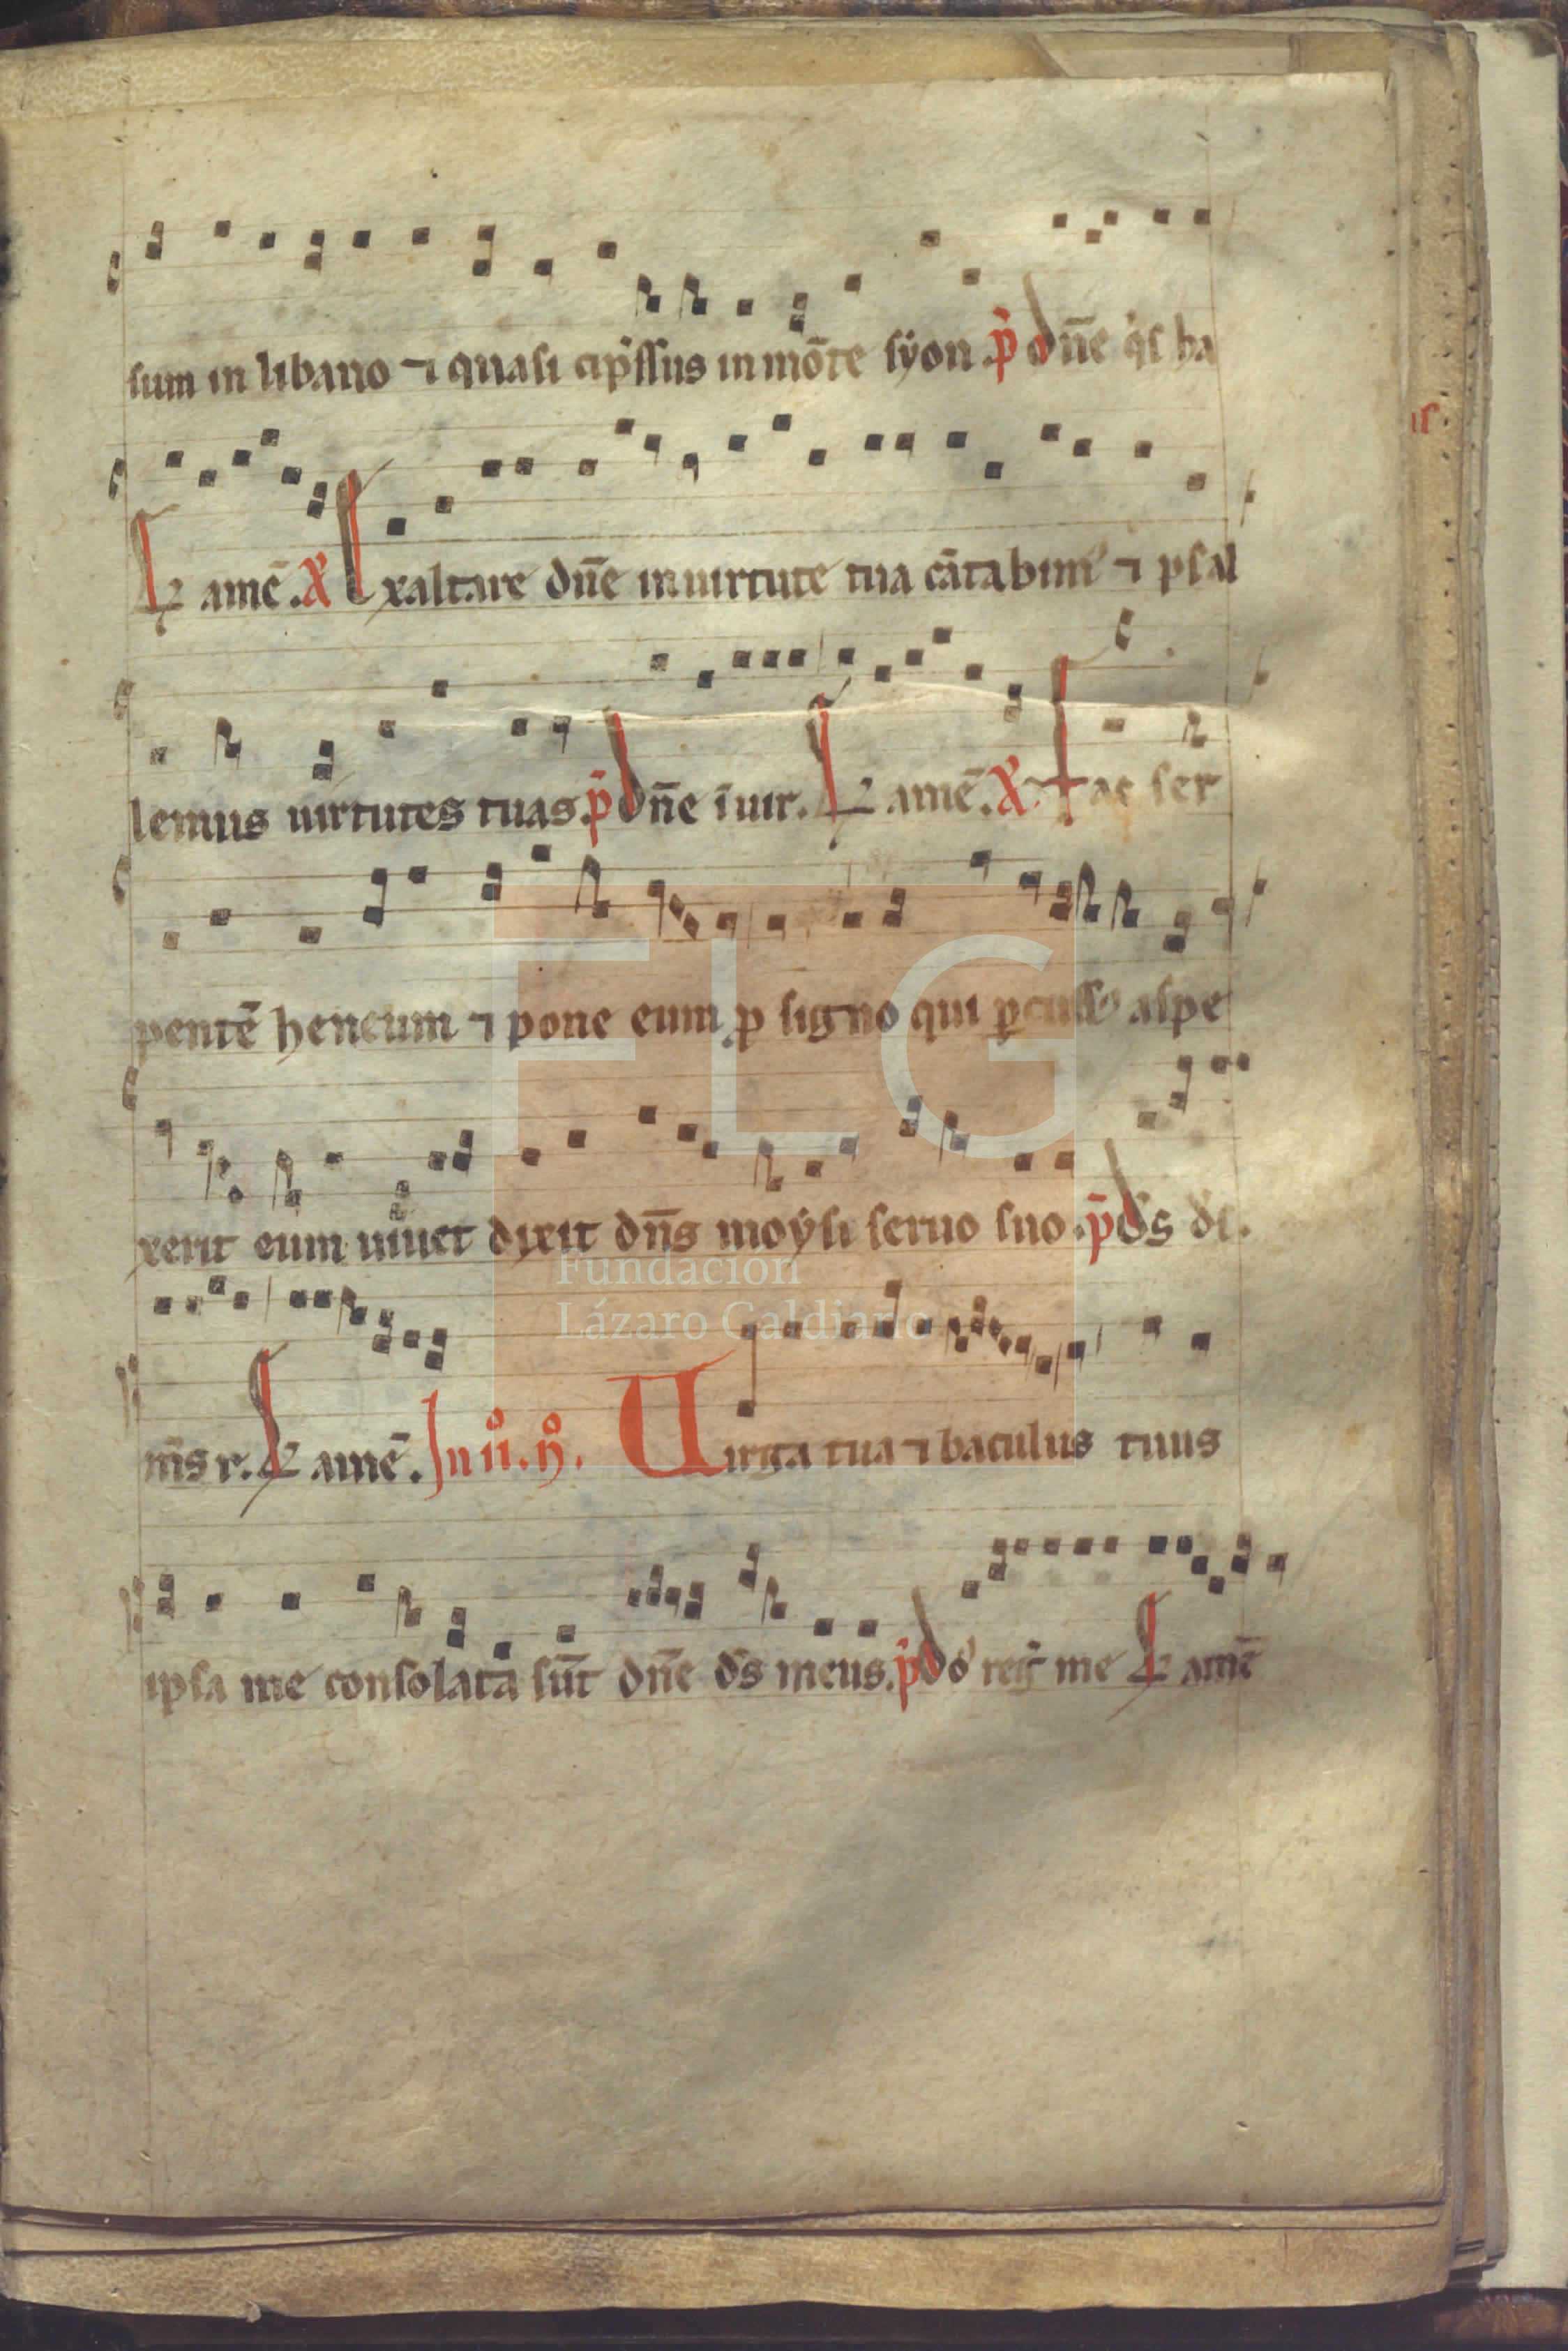 sum in libano ⁊ quasi cip̾ssus in mōte sẏon. p̄ dn̄e q̇s ha
E amē. A Exaltare dn̄e in uirtute tua cātabim᾽ ⁊ psal
is
lemus uirtutes tuas. p̄ dn̄e ī uir. E amē. A Fac ser
pentē heneum ⁊ pone eum p signo qui ꝑcuss᾽ aspe
xerit eum uiuet dixit dn̄s moẏsi seruo suo. p̄ ds̄ ds̄.
m̄s r. E amē. In
Uirga tua ⁊ baculus tuus
ipsa me consolata sūt dn̄e ds̄ meus. p̄ me E amē
FLG
Fundación
Lázaro Galdiano